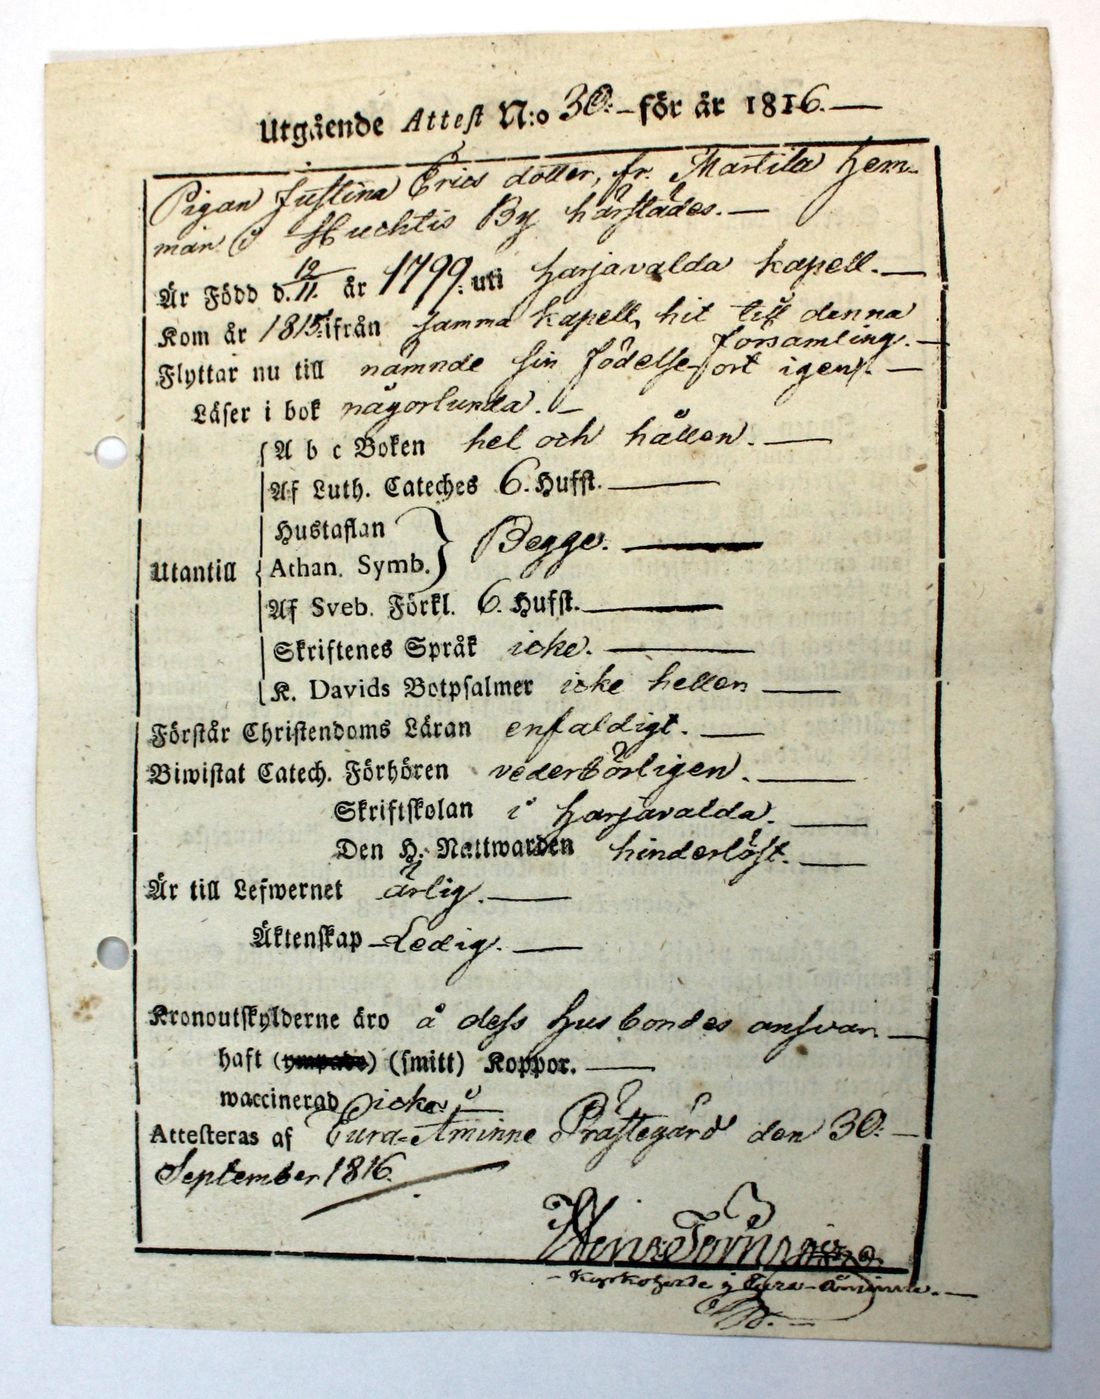 Utgående Attest N:o 30. för år 1816.
Pigan Justina Erics dotter, fr. Martila Hem-
man i Huchtis By härstädes.
Är Född d. 12/11. år 1799. uti Harjavalda kapell.
Kom år 1815. ifrån samma kapell, hit till denna
församling.
Flyttar nu till nämnde sin födelse-ort igen.
Läser i bok någorlunda.
A b c Boken hel och hållen.
Af Luth. Cateches 6. Hufst.
Hustaflan
Athan. Symb. } Begge.
Utantill
Af Sveb. Förkl. 6. Hufst.
Skriftenes Språk icke.
K. Davids Botpsalmer icke hellen
Förstår Christendoms Läran enfaldigt.
Biwistat Catech. Förhören vederbörligen.
Skriftskolan i Harjavalda.
Den H. Nattwarden hinderlöst.
Är till Lefwernet ärlig.
Äktenskap Ledig.
Kronoutskylderne äro å dess Husbondes ansvar.
haft (ympade) (smitt) Koppor.
waccinerad icke.
Attesteras af Eura-Åminne Prästegård den 30.
September 1816.
Kyrkoherde i Eura-Åminne.